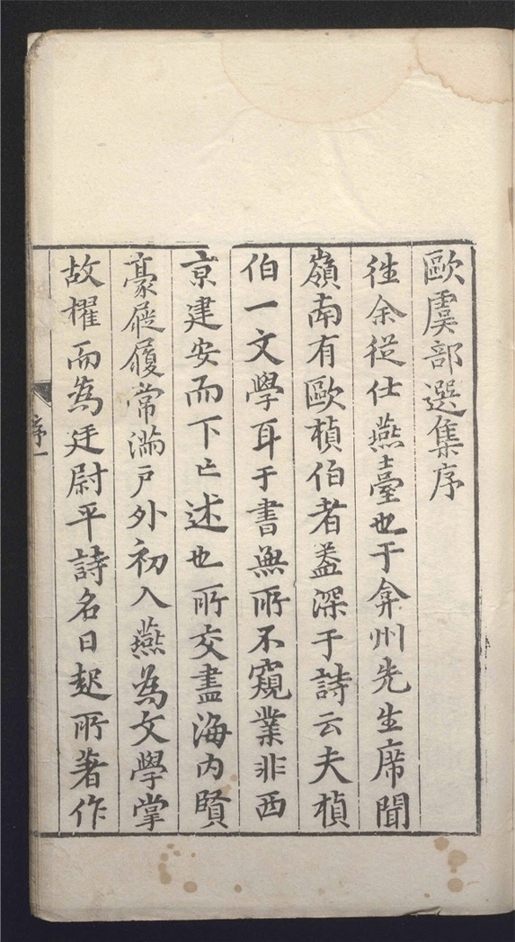 歐虞部選集序
徃余從仕燕臺也于弇州先生席聞
嶺南有歐楨伯者葢深于詩云夫楨
伯一文學耳于書無所不窺業非西
京建安而下亡述也所交盡海内賢
豪屣履常滿戶外初入燕為文學掌
故擢而為廷尉平詩名日起所著作
序一